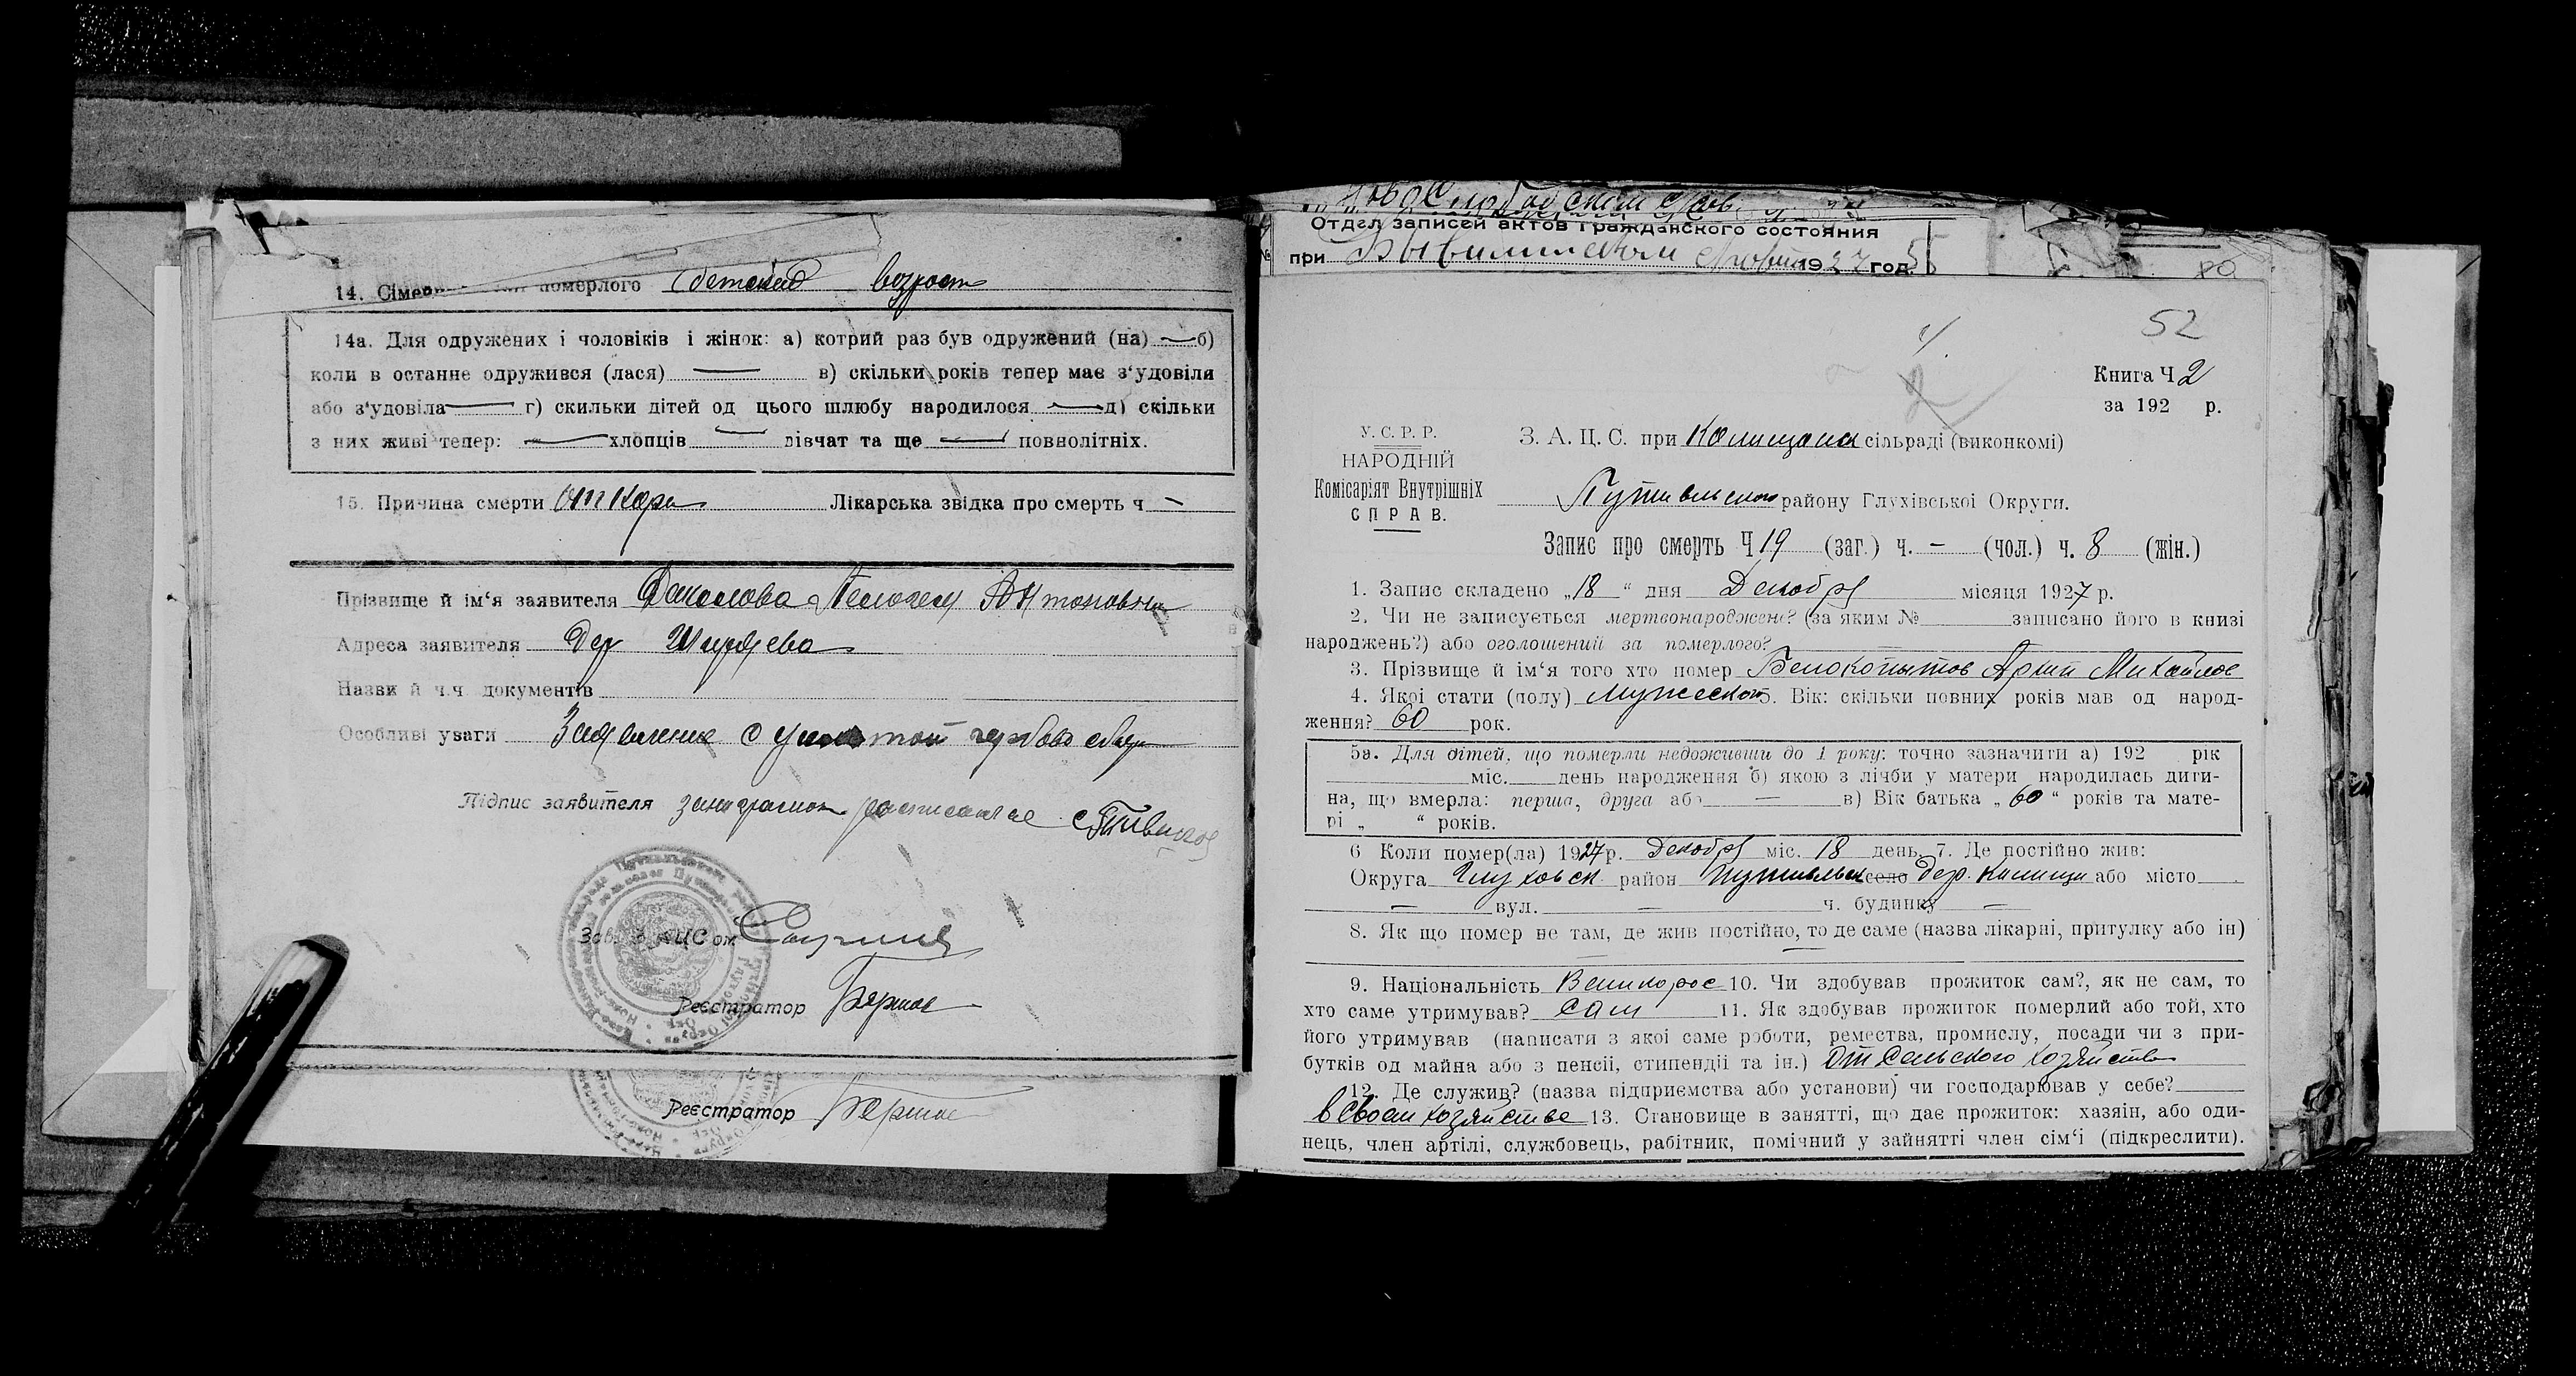 14. померлого детский возраст
14а. Для одружених і чоловіків і жінок: а) котрий раз був одружений (на) — б)
коли в останне одружився (лася) — в) скільки років тепер має з‘удовіля
або з‘удовіла — г) скильки дітей од цього шлюбу народилося — д) скільки
з них живі тепер: — хлопців — дівчат та ще — повнолітніх.
15. Причина смерти от кори Лікарська звідка про смерть ч —
Прізвище й ім‘я заявителя Антоновна
Адреса заявителя дер Ширяево
Назви й ч.ч документів
Особливі уваги Заявление с гербов сбора
Підпис заявителя
Зав. ЗАЦСом
Реєстратор
Реєстратор
Отдел записей актов гражданского состояния
при 1927 год.
52
Книга Ч 2
за 192 р.
У. С. Р. Р.
НАРОДНІЙ
Комісаріят Внутрішніх
СПРАВ.
З. А. Ц. С. при сільраді (виконкомі)
Путивльского району Глухівської Округи.
Запис про смерть Ч 19 (заг.) ч. - (чол.) ч. 8 (жін.)
1. Запис складено „18“ дня Декабря місяця 1927 р.
2. Чи не записується мертвонароджене? (за яким № записано його в книзі
народжень?) або оголошений за померлого?
3. Прізвище й ім‘я того хто помер Белокопытов Михайлов
4. Якої стати (полу) мужеского 5. Вік: скільки повних років мав од народ-
ження? 60 рок.
5а. Для дітей, що померли недоживши до 1 року: точно зазначити а) 192 рік
міс. день народження б) якою з лічби у матери народилась дити-
на, що вмерла: перша, друга або — в) Вік батька „60“ років та мате-
рі „ “ років.
6 Коли помер(ла) 1927 р. Декабря міс. 18 день. 7. Де постійно жив:
Округа Глуховск район Путивльск село дер. або місто
— вул. — ч. будинку —
8. Як що помер не там, де жив постійно, то де саме (назва лікарні, притулку або ін)
—
9. Національність Великорос 10. Чи здобував прожиток сам?, як не сам, то
хто саме утримував? сам 11. Як здобував прожиток померлий або той, хто
його утримував (написати з якої саме роботи, ремества, промислу, посади чи з при-
бутків од майна або з пенсії, стипендії та ін.) От сельского хозяйства
12. Де служив? (назва підприємства або установи) чи господарював у себе?
в своем хозяйстве 13. Становище в занятті, що дає прожиток: хазяін, або оди-
нець, член артілі, службовець, рабітник, помічний у зайнятті член сім‘ї (підкреслити).